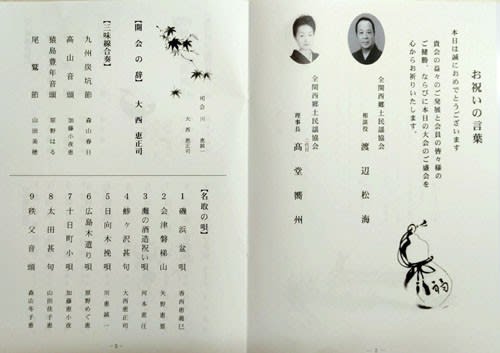 お祝いの言葉
本日は誠におめでとうございます
貴会の益々のご発展と会員の皆々様の
ご健勝、ならびに本日の大会のご盛会を
心からお祈りいたします。
全関西郷土民謡協会
相談役 渡辺松海
全関西郷土民謡協会
理事長 髙堂嚮州
福
- 2 -
司会 川 恵誠一
大西恵正司
【開会の辞】 大西恵正司
【三味線合奏】
九州炭坑節 森山春日
高山音頭 加藤小夜恵
猿島豊年音頭 原野はる
尾鷲節 山田美穂
【名取の唄】
1 磯浜盆唄 香西恵義巳
2 会津磐梯山 矢野恵恵
3 灘の酒造祝い唄 河本恵江
4 鯵ヶ沢甚句 大西恵正司
5 日向木挽唄 川恵誠一
6 広島木遣り唄 原野めぐ恵
7 十日町小唄 加藤恵小夜
8 太田甚句 山田佳子恵
9 秩父音頭 森山年子恵
- 3 -